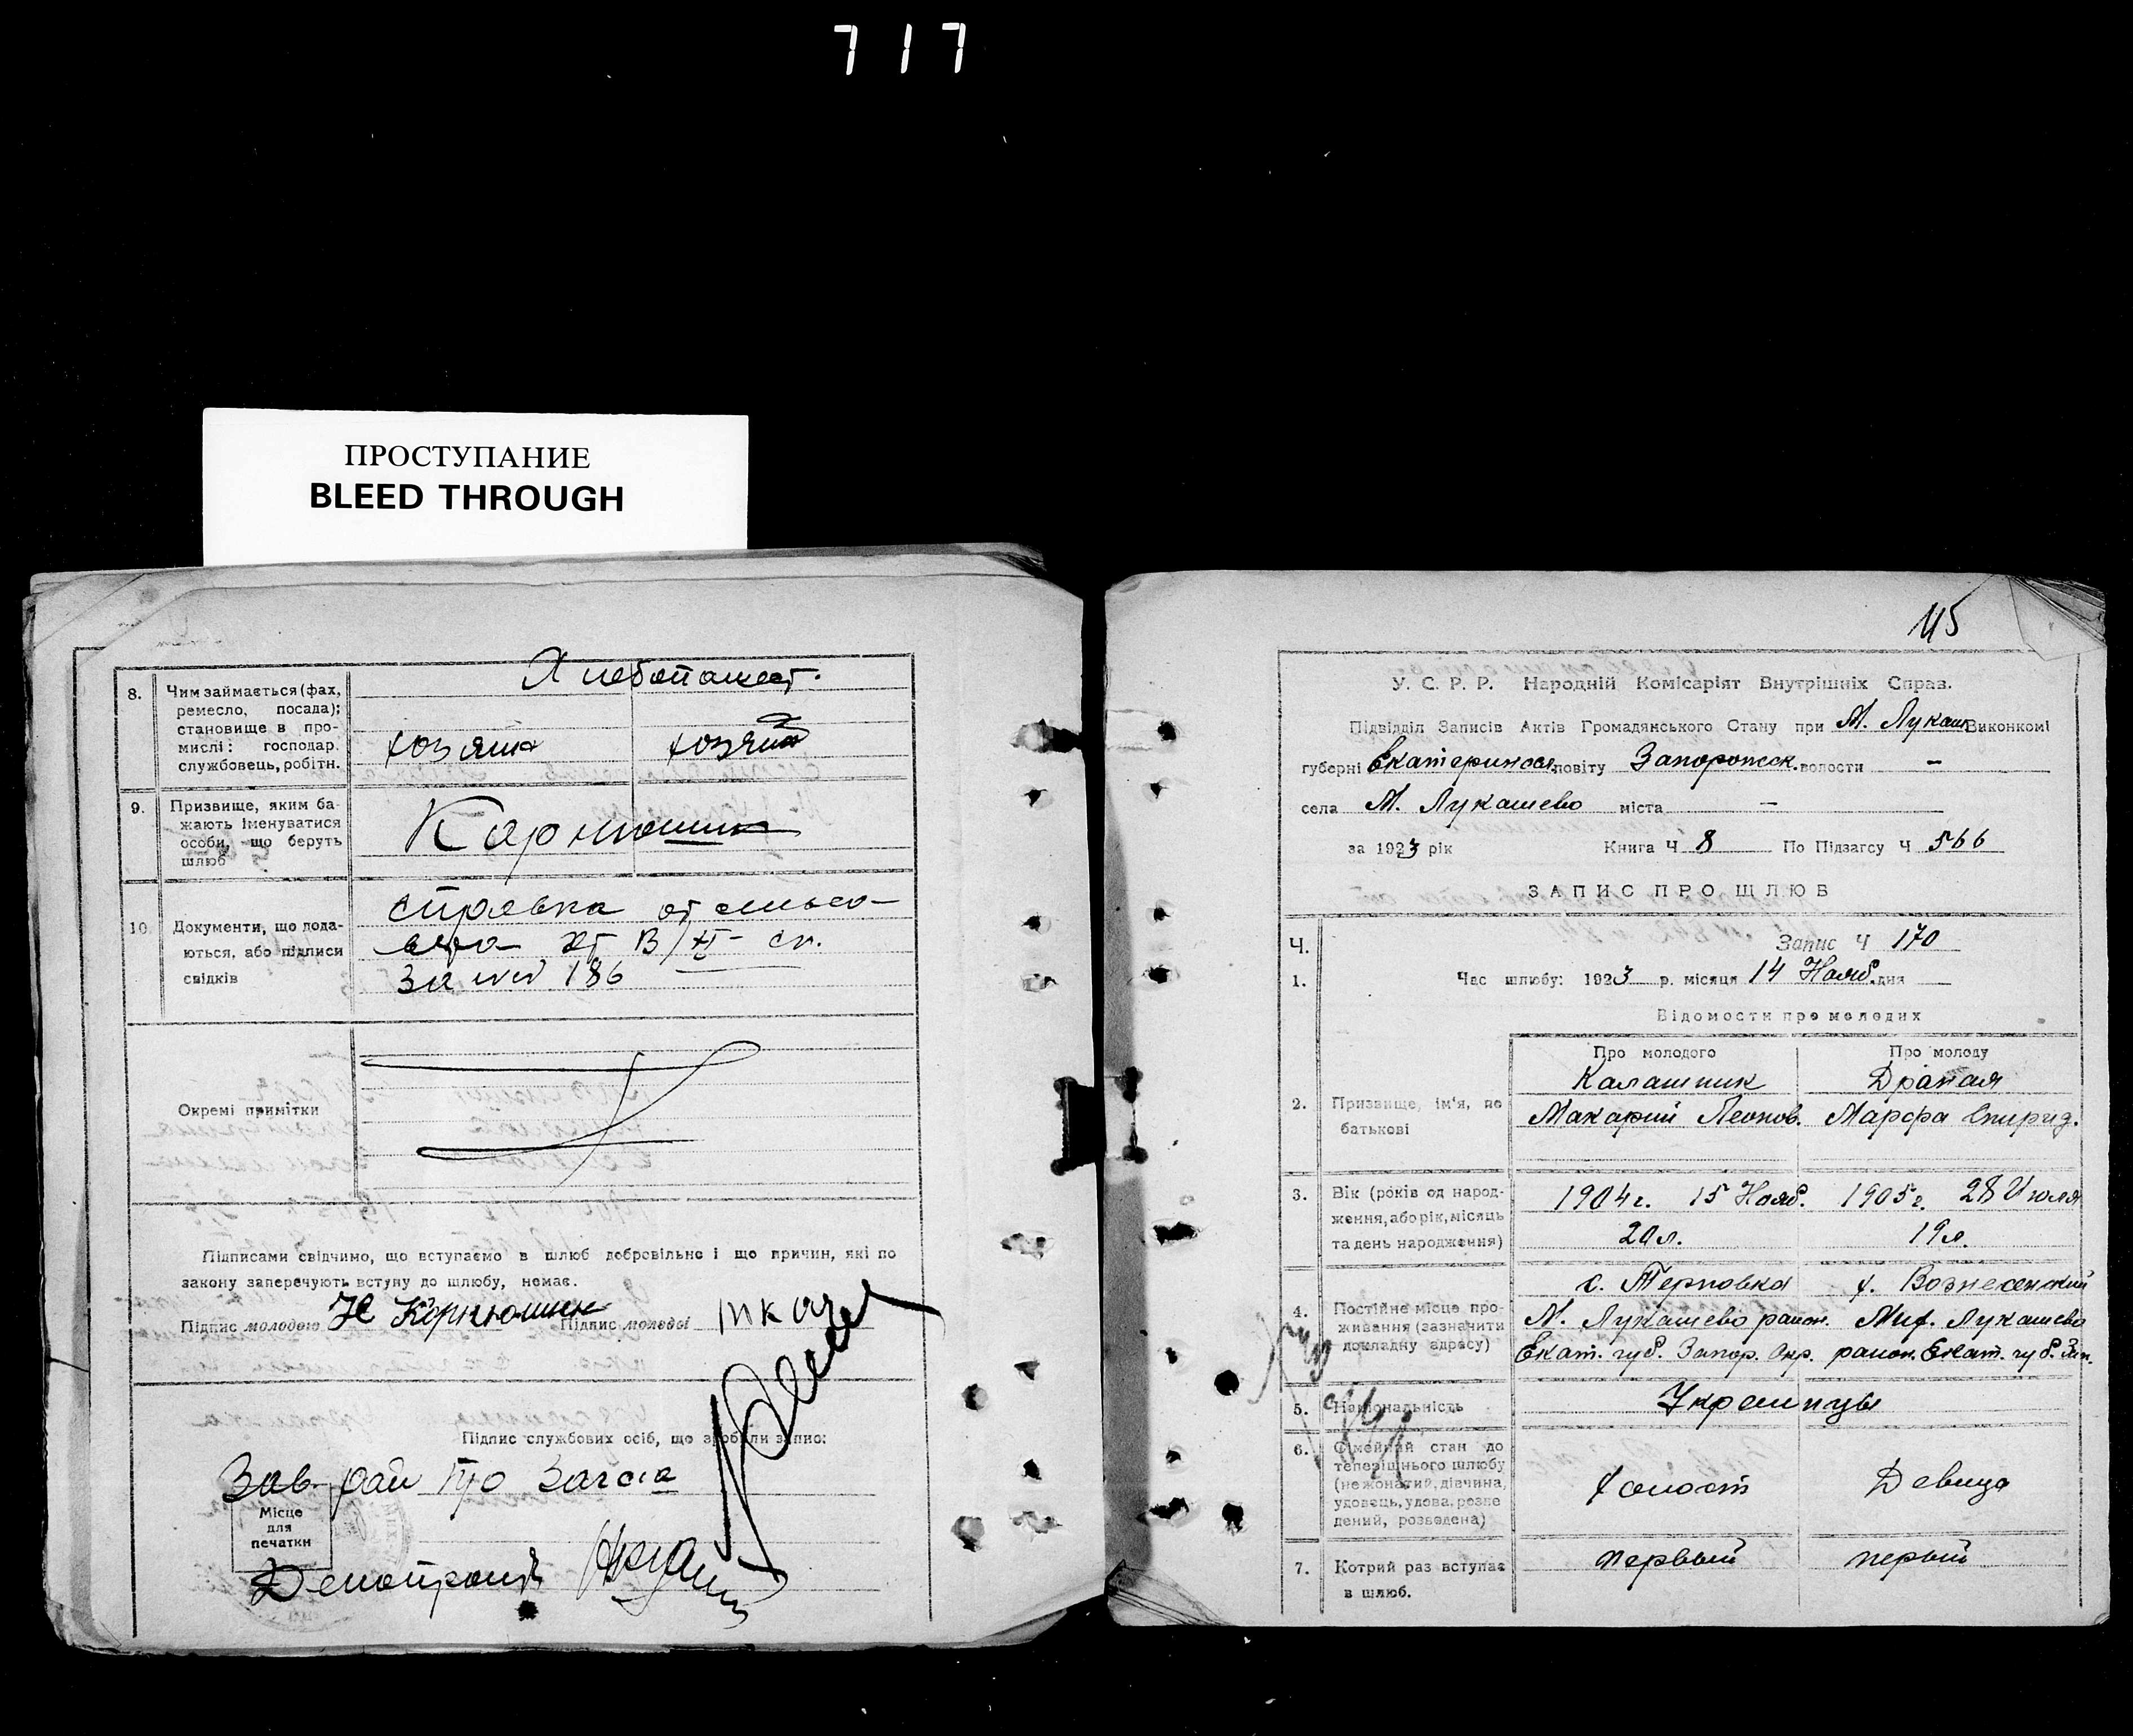 717
ПРОСТУПАНИЕ
BLEED THROUGH
Хлебопашест.
8. Чим займається (фах,
ремесло, посада);
становище в про-
мислі: господар.
службовець, робітн.
хозяин хозяин
9. Призвище, яким ба-
жають іменуватися
особи, що беруть
шлюб
Корнюшин
10. Документи, що дода-
ються, або підписи
свідків
Справка от сельсо-
вета от В/XI- сг.
за № 186
Окремі примітки
Підписами свідчимо, що вступаємо в шлюб добровільно і що причин, які по
закону заперечують вступу до шлюбу, немає.
Підпис молодого Н Корнюшин Підпис молодої ткачел
Підпис службових осіб, що зробили запис:
Зав. рай Загса
Місце
для
печатки
Делопроизв
45
У. С. Р. Р. Народній Комісаріят Внутрішніх Справ.
Підвідділ Записів Актів Громадянського Стану при М. Лукаш Виконкомі
губерні Екатериносл. повіту Запорожск. волости –
села М. Лукашево міста –
за 1923 рік Книга Ч 8 По Підзагсу Ч 566
ЗАПИС ПРО ШЛЮБ
Ч. Запис Ч 170
1. Час шлюбу: 1923 р. місяця 14 Нояб. дня
Відомости про молодих
Про молодого Про молоду
Калашник Драная
2. Призвище, ім'я, по
батькові
Макарий Леонов. Марфа Спирид.
3. Вік (років од народ-
ження, або рік, місяць
та день народження)
1904 г. 15 Нояб. 1905 г. 28 Июля
20 л. 19 л.
с. Терповка х. Вознесенский
4. Постійне місце про-
живання (зазначити
докладну адресу)
М. Лукашево район. Мих. Лукашево
Екат. губ. Запор. Окр. район. Екат. губ. Зап.
5. Національність
Украинцы
6. Сімейний стан до
теперішнього шлюбу
(нежонатий, дівчина,
удовець, удова, розве
дений, розведена)
холост Девица
7. Котрий раз вступає
в шлюб.
первый первый